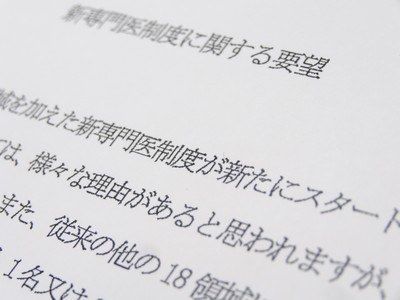 新専門医制度に関する要望
域を加えた新専門医制度が新たにスタート
は、様々な理由があると思われますが、
また、従来の他の18領域
1名又は